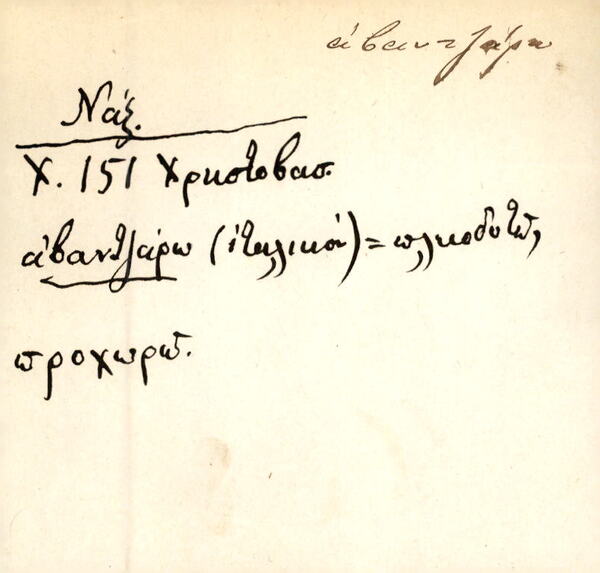 ἀβαντζάρω
Νάξ.
Χ. 151 Χρηστοβασ.
ἀβαντζάρω (ἰταλικὸ) = πλεοδοτῶ,
προχωρῶ.